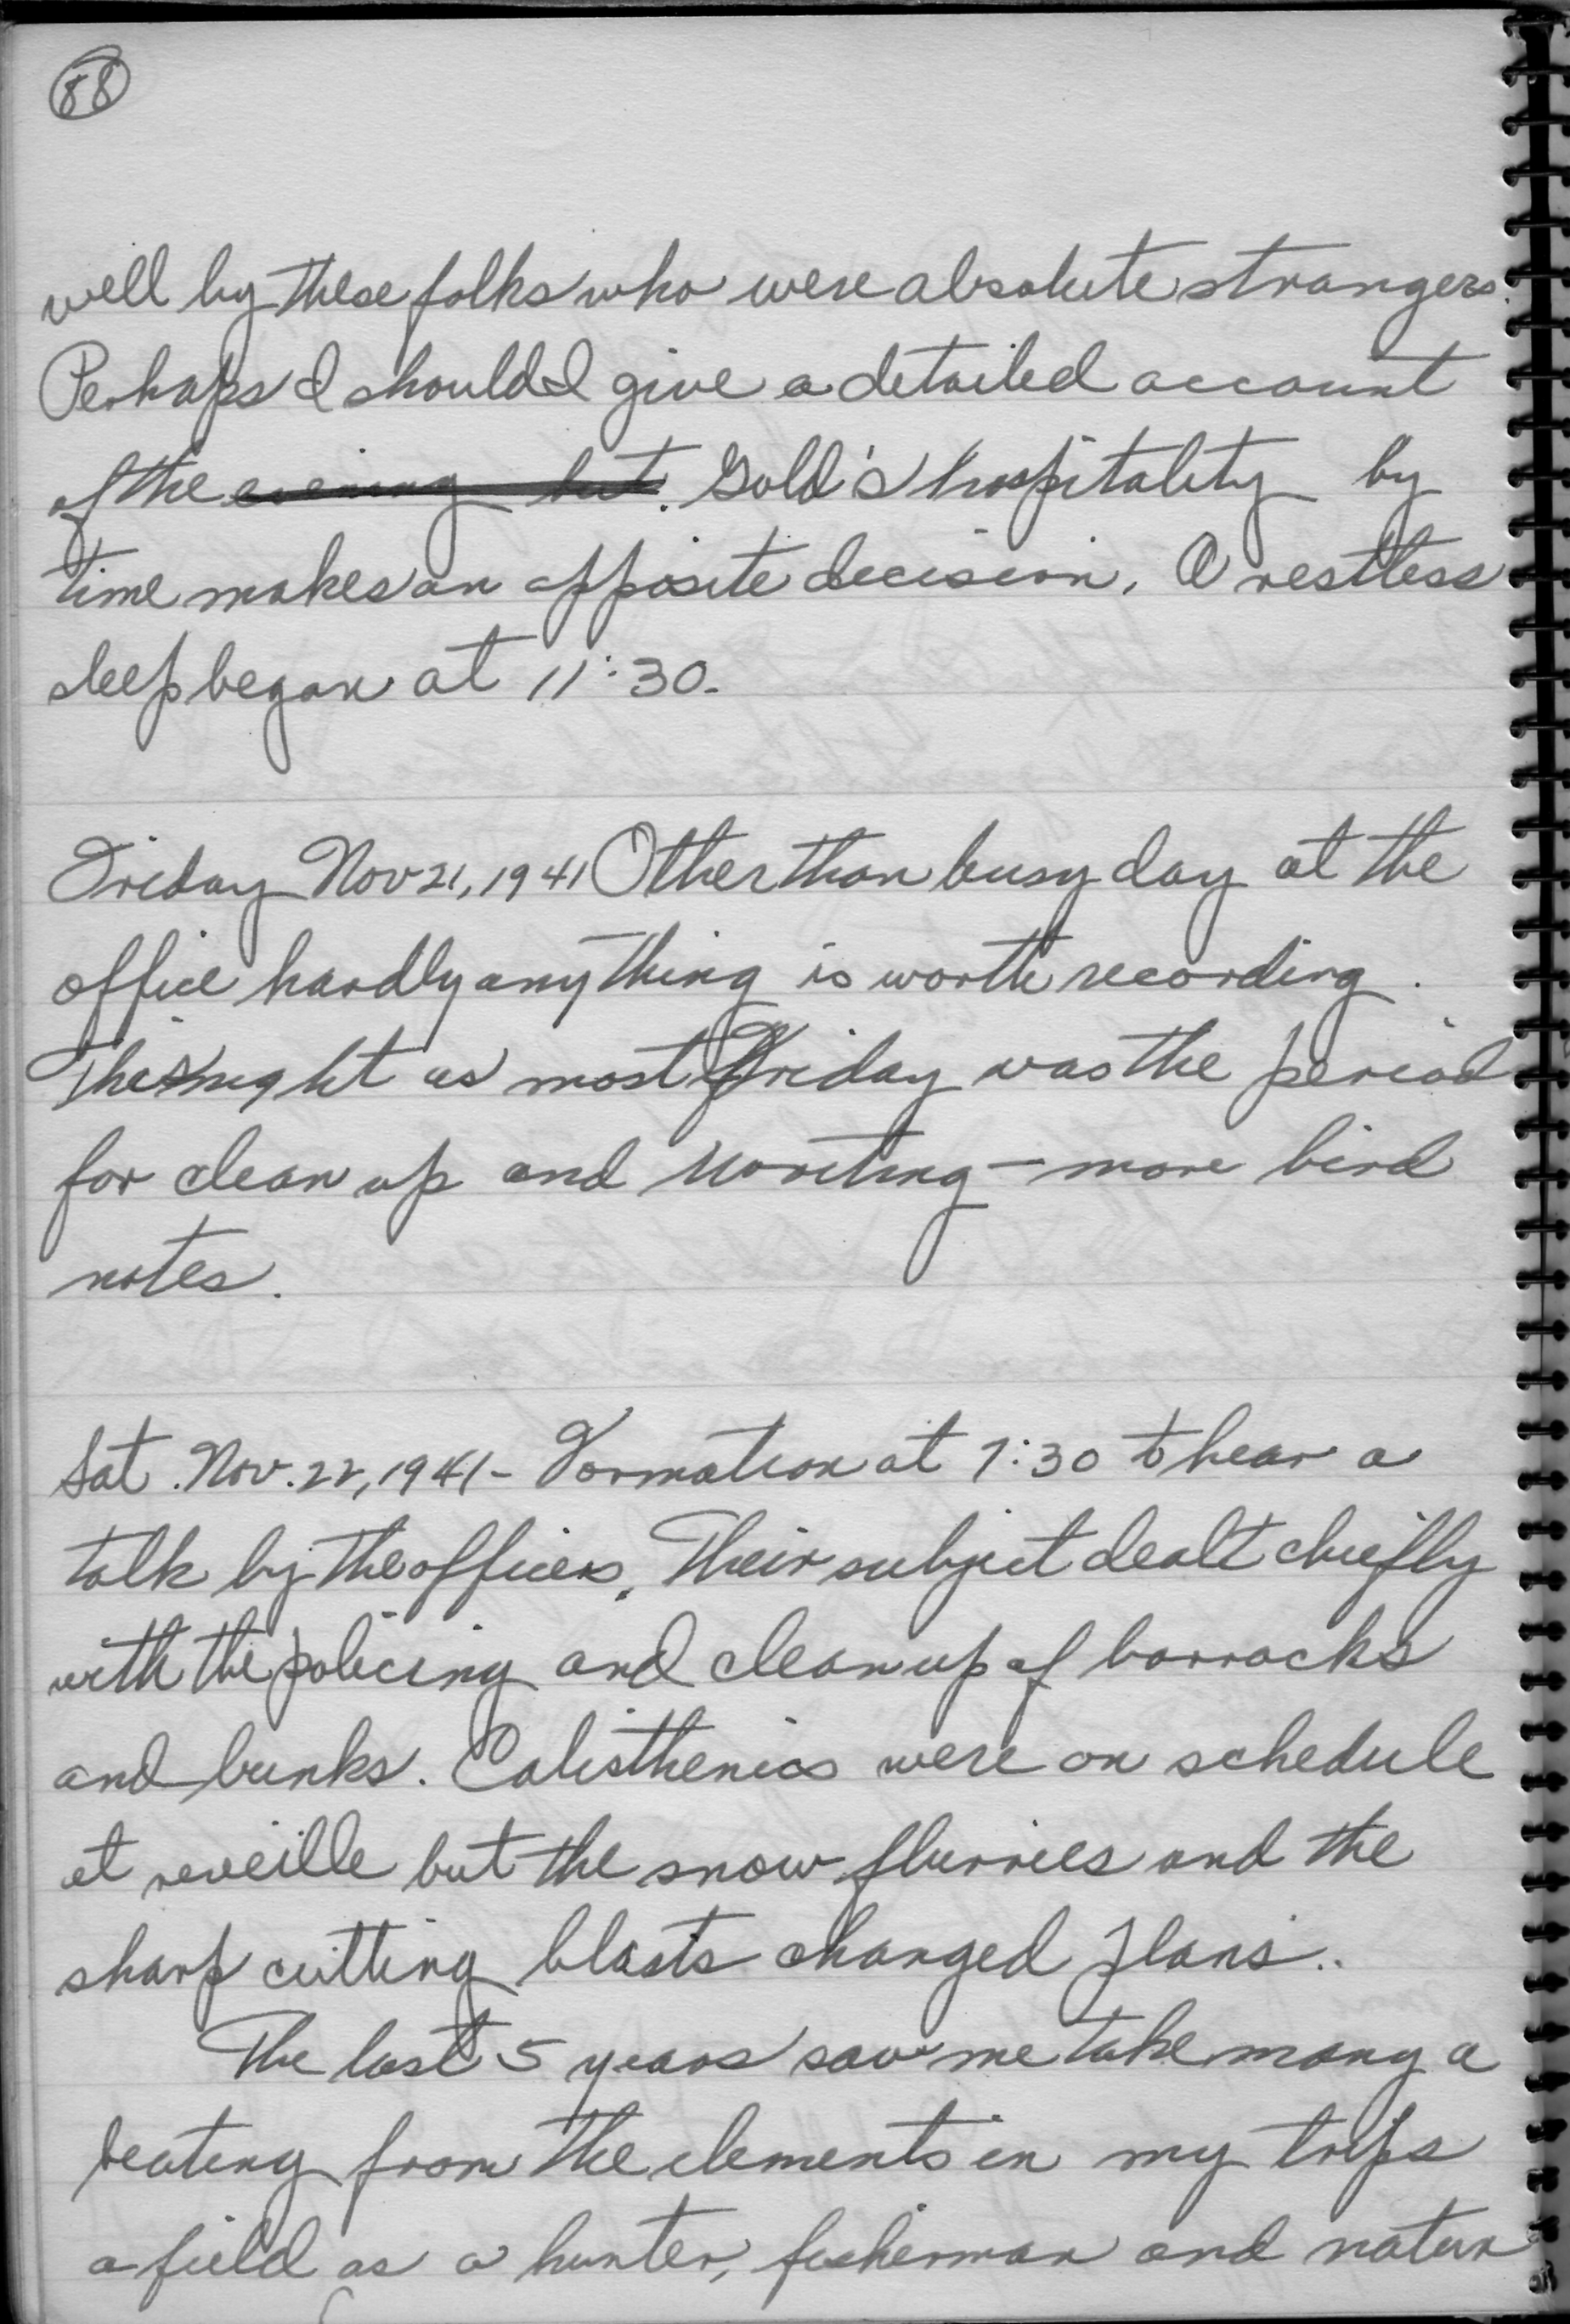 88
well by these folks who were absolute strangers.
Perhaps I should I give a detailed account
of the evening but. Gold's hospitality by
time makes an opposite decision. A restless
sleep began at 11:30.
Friday Nov 21, 1941 Other than busy day at the
office hardly anything is worth recording.
The night as most Friday was the period
for clean up and writing - more bird
notes.
Sat. Nov. 22, 1941 - Formation at 7:30 to hear a
talk by the officers. Their subject dealt chiefly
with the policing and cleanup of barracks
and bunks. Calisthenics were on schedule
at reveille but the snow flurries and the
sharp cutting blasts changed plans..
The last 5 years saw me take many a
beating from the elements in my trips
a field as a hunter, fisherman and natur